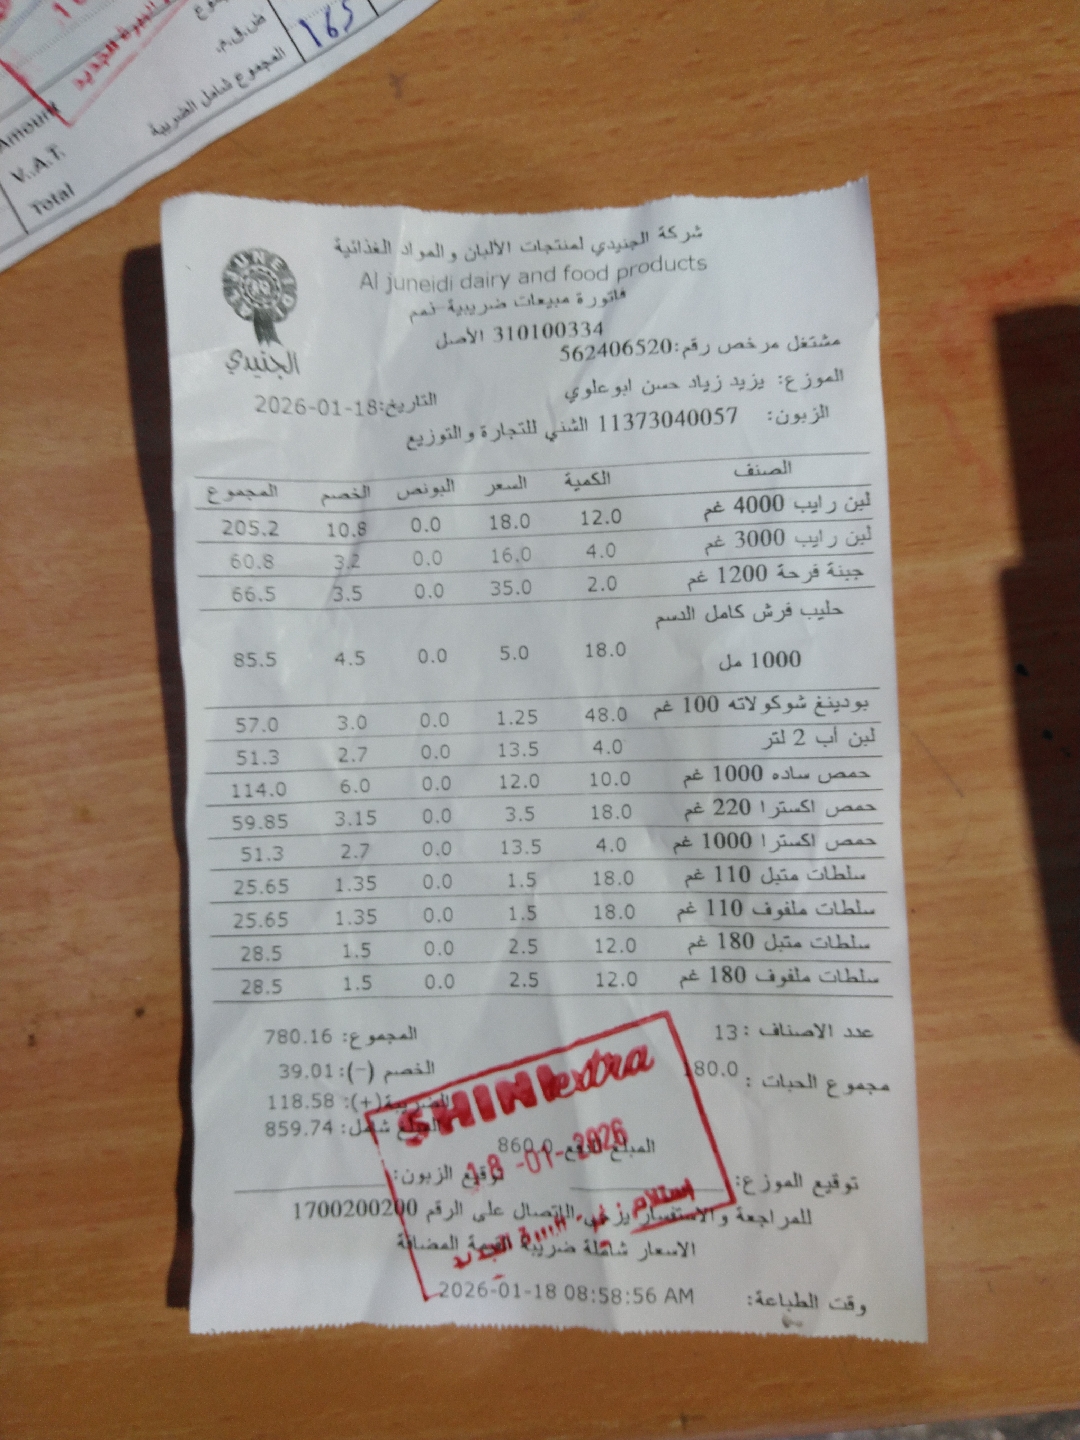 165
ض.ق.م.
المجموع شامل الضريبة
Amount
V.A.T.
Total
شركة الجنيدي لمنتجات الألبان والمواد الغذائية
Al juneidi dairy and food products
فاتورة مبيعات ضريبية-نعم
310100334 الأصل
مشتغل مرخص رقم:562406520
الجنيدي
الموزع: يزيد زياد حسن ابوعلوي
التاريخ:2026-01-18
الزبون: 11373040057 الشني للتجارة والتوزيع
الصنف الكمية السعر البونص الخصم المجموع
لبن رايب 4000 غم 12.0 18.0 0.0 10.8 205.2
لبن رايب 3000 غم 4.0 16.0 0.0 3.2 60.8
جبنة فرحة 1200 غم 2.0 35.0 0.0 3.5 66.5
حليب فرش كامل الدسم
1000 مل 18.0 5.0 0.0 4.5 85.5
بودينغ شوكولاته 100 غم 48.0 1.25 0.0 3.0 57.0
لبن أب 2 لتر 4.0 13.5 0.0 2.7 51.3
حمص ساده 1000 غم 10.0 12.0 0.0 6.0 114.0
حمص اكسترا 220 غم 18.0 3.5 0.0 3.15 59.85
حمص اكسترا 1000 غم 4.0 13.5 0.0 2.7 51.3
سلطات متبل 110 غم 18.0 1.5 0.0 1.35 25.65
سلطات ملفوف 110 غم 18.0 1.5 0.0 1.35 25.65
سلطات متبل 180 غم 12.0 2.5 0.0 1.5 28.5
سلطات ملفوف 180 غم 12.0 2.5 0.0 1.5 28.5
عدد الاصناف : 13 المجموع: 780.16
مجموع الحبات : 180.0 الخصم (-): 39.01
الضريبة(+): 118.58
المبلغ شامل: 859.74
SHINI extra
المبلغ للدفع 860.0
18-01-2026
توقيع الموزع: توقيع الزبون:
استلام
للمراجعة والاستفسار يرجى الاتصال على الرقم 1700200200
الاسعار شاملة ضريبة القيمة المضافة
وقت الطباعة: 2026-01-18 08:58:56 AM